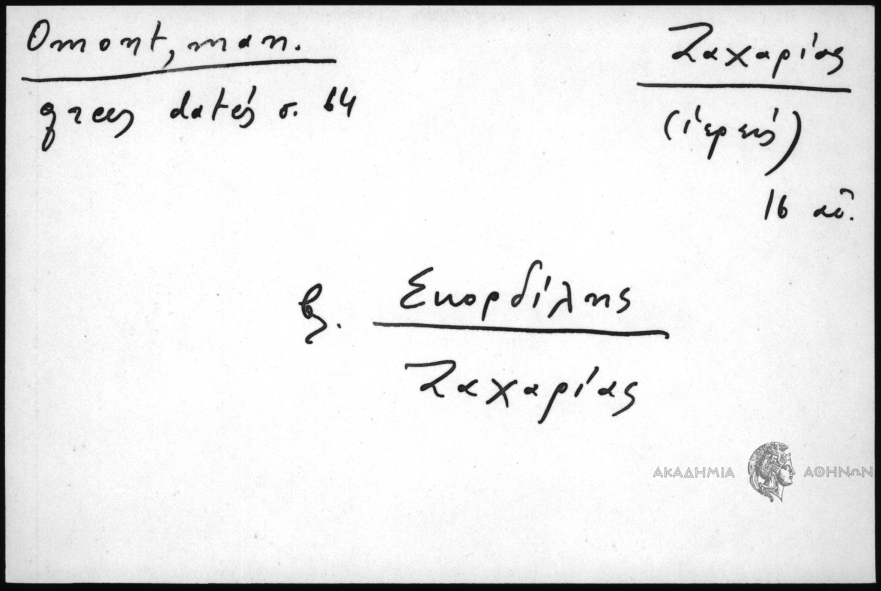 Omont, man.
grecs datés σ. 64
Ζαχαρίας
(ἱερεύς)
16 αἰ.
βλ. Σκορδίλης
Ζαχαρίας
ΑΚΑΔΗΜΙΑ ΑΘΗΝΩΝ